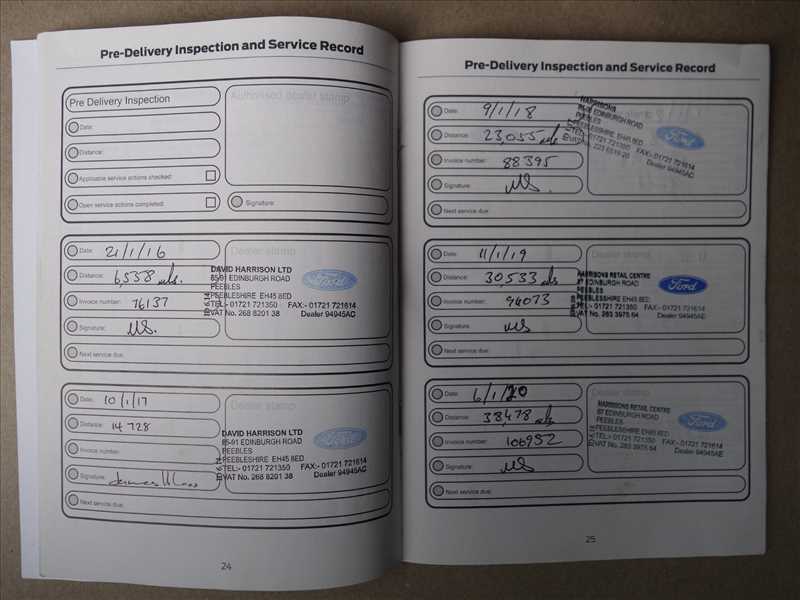 Pre-Delivery Inspection and Service Record
Pre Delivery Inspection
Authorised dealer stamp
Date:
Distance:
Applicable service actions checked:
Open service actions completed:
Signature:
Date: 21/1/16
Dealer stamp
Distance: 6,538 mls.
DAVID HARRISON LTD
85-91 EDINBURGH ROAD
PEEBLES
Invoice number: 76137
PEEBLESHIRE EH45 8ED
TEL:- 01721 721350 FAX:- 01721 721614
VAT No. 268 8201 38 Dealer 94945AC
Ford
Signature:
Next service due:
Date: 10/1/17
Dealer stamp
Distance: 14 728
DAVID HARRISON LTD
85-91 EDINBURGH ROAD
Invoice number:
PEEBLES
PEEBLESHIRE EH45 8ED
TEL:- 01721 721350 FAX:- 01721 721614
VAT No. 268 8201 38 Dealer 94945AC
Ford
Signature:
Next service due:
24
Pre-Delivery Inspection and Service Record
Date: 9/1/18
Distance: 23,055 mls
HARRISONS
EDINBURGH ROAD
PEEBLES
PEEBLESHIRE EH45 8ED
TEL:- 01721 721350 FAX:- 01721 721614
Dealer 94945AC
Ford
Invoice number: 88395
Signature:
Next service due:
Date: 11/1/19
Dealer stamp
Distance: 30,533 mls
HARRISONS RETAIL CENTRE
87 EDINBURGH ROAD
PEEBLES
Invoice number: 94073
PEEBLESSHIRE EH45 8ED
TEL:- 01721 721350 FAX:- 01721 721614
VAT No. 283 3975 64 Dealer 94945AE
Ford
Signature:
Next service due:
Date: 6/1/20
Dealer stamp
Distance: 38,478 mls
HARRISONS RETAIL CENTRE
87 EDINBURGH ROAD
PEEBLES
Invoice number: 106952
PEEBLESSHIRE EH45 8ED
TEL:- 01721 721350 FAX:- 01721 721614
VAT No. 283 3975 64 Dealer 94945AE
Ford
Signature:
Next service due:
25